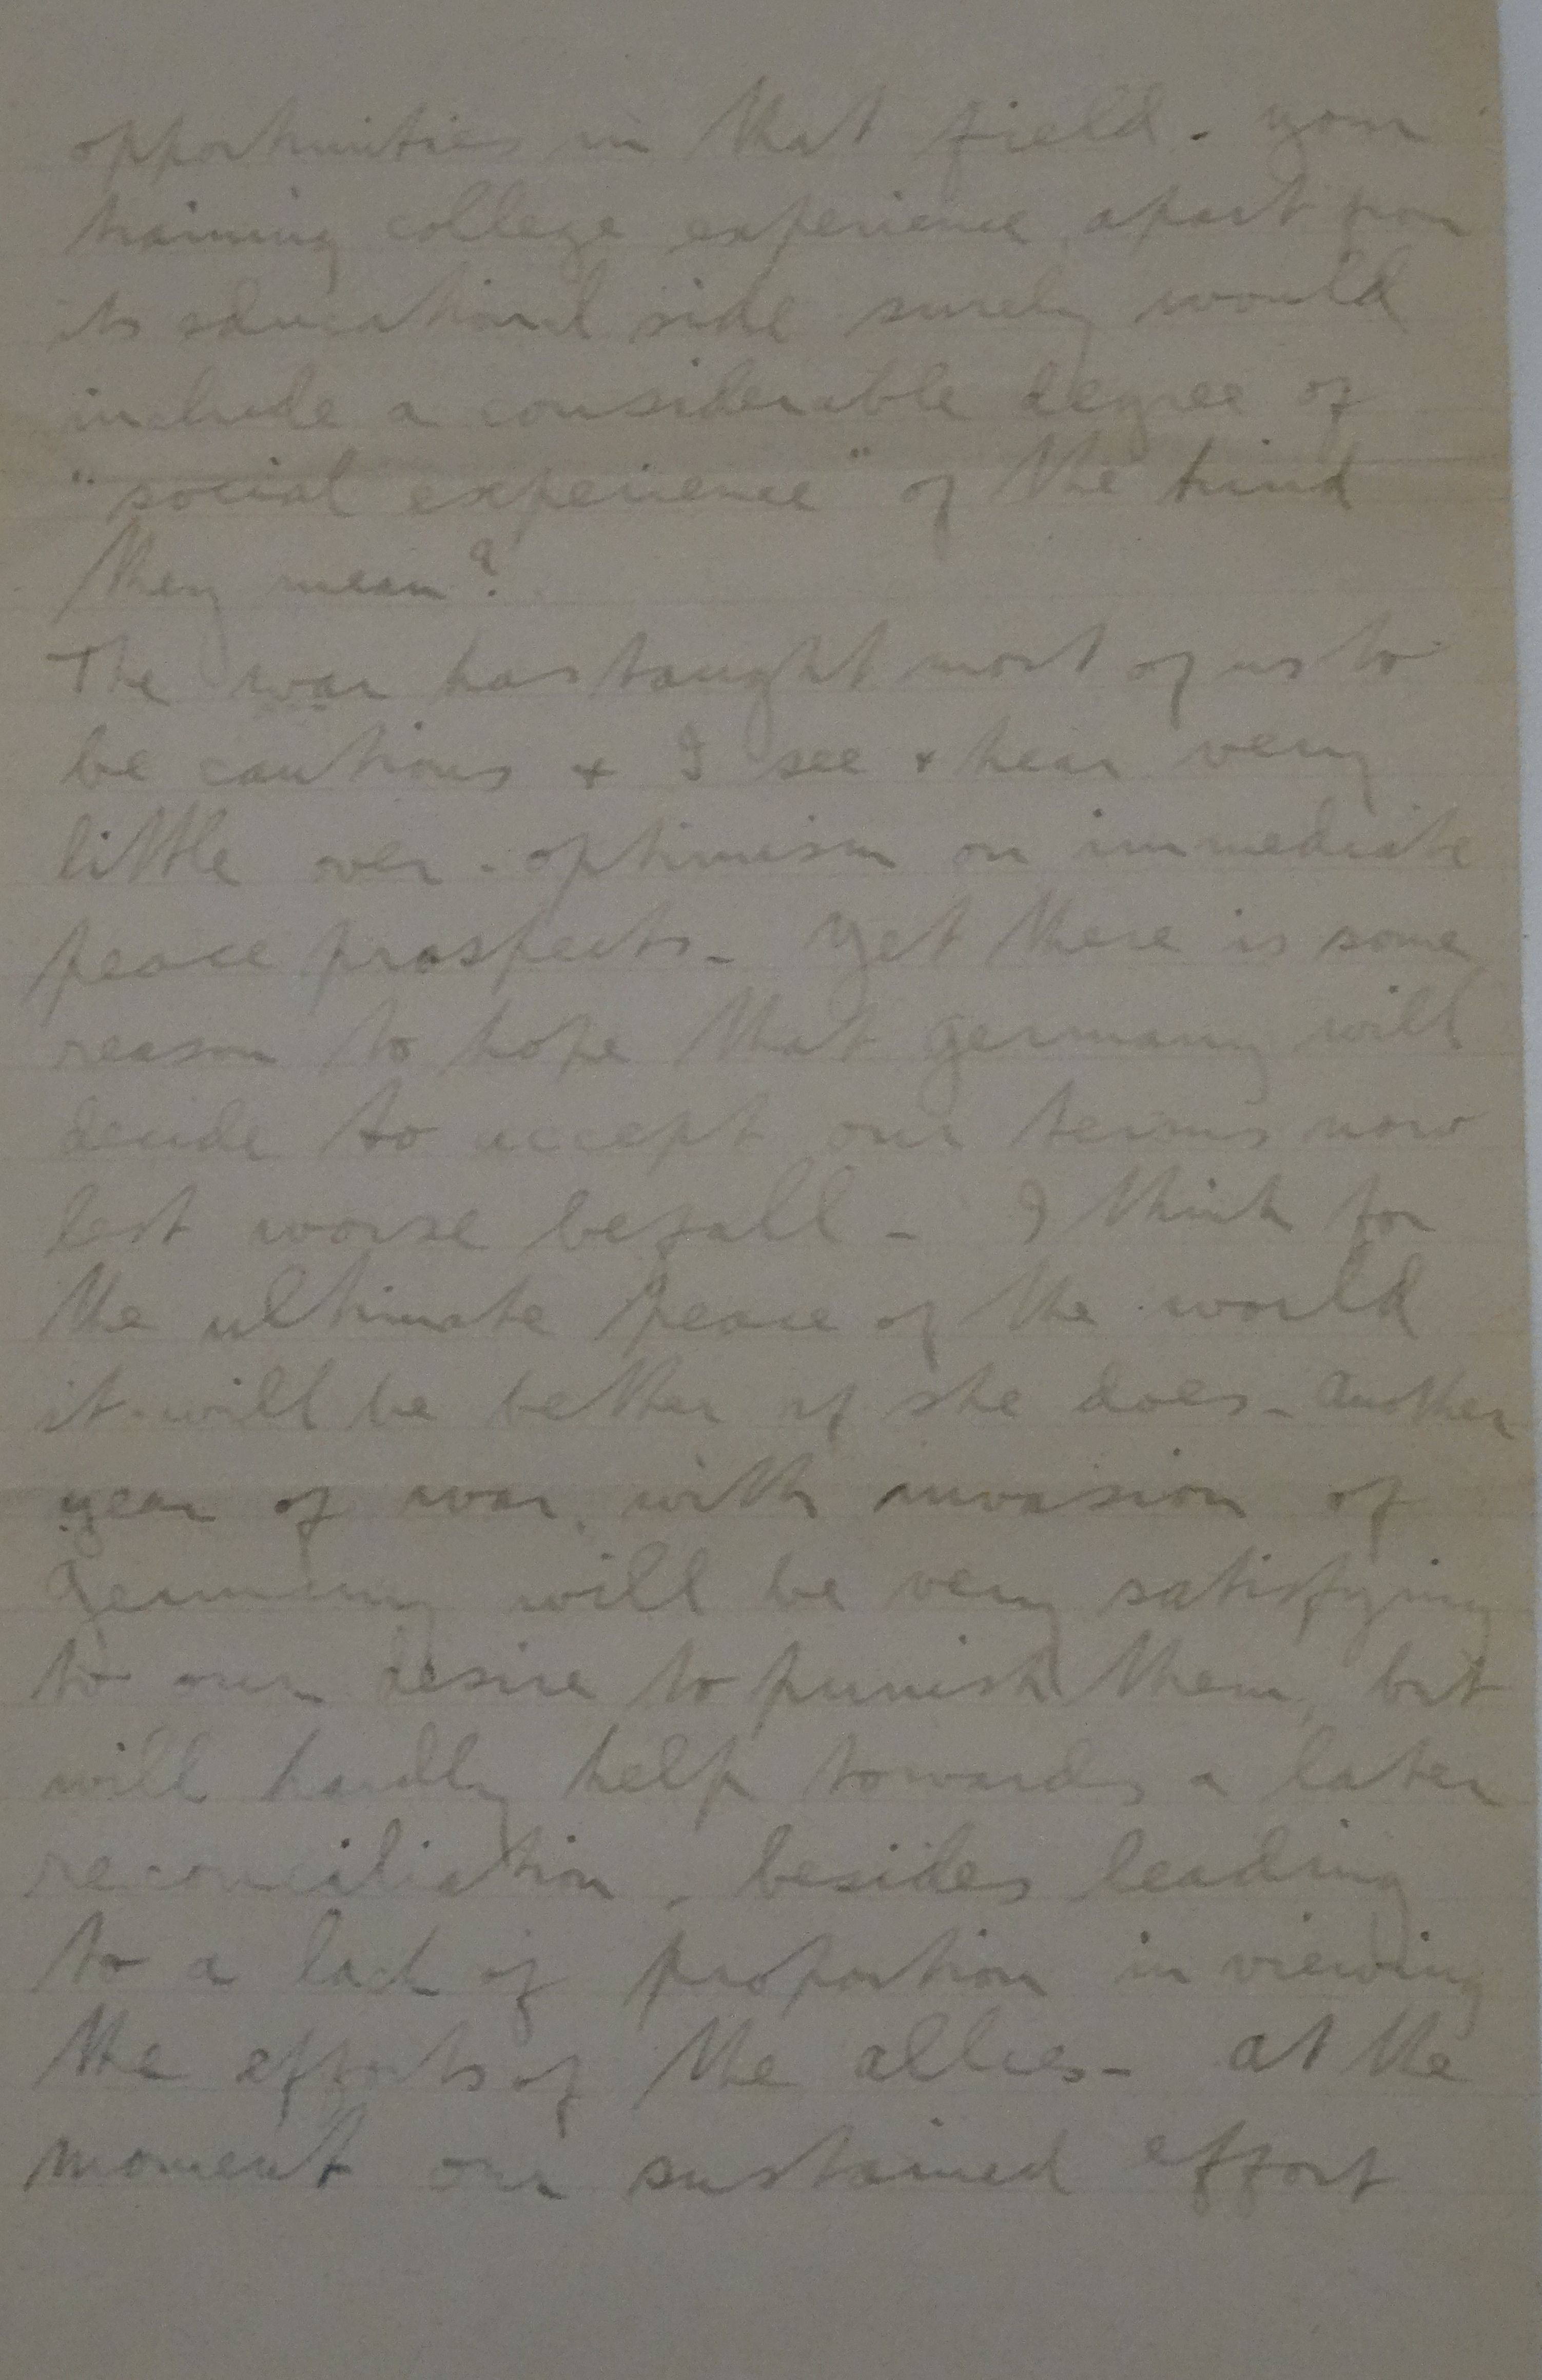 opportunities in that field - your
training college experience, apart from
its educational side surely would
include a considerable degree of
"social experience" of the kind
they mean?
The war has taught most of us to
be cautious + I see + hear very
little over-optimism on immediate
peace prospects - Yet there is some
reason to hope that Germany will
decide to accept our terms now
lest worse befall - I think for
the ultimate peace of the world
it will be better if she does - Another
year of war, with invasion of
Germany will be very satisfying
to our desire to punish them, but
will hardly help towards a later
reconciliation, besides leading
to a lack of proportion in viewing
the efforts of the allies - At the
moment our sustained effort